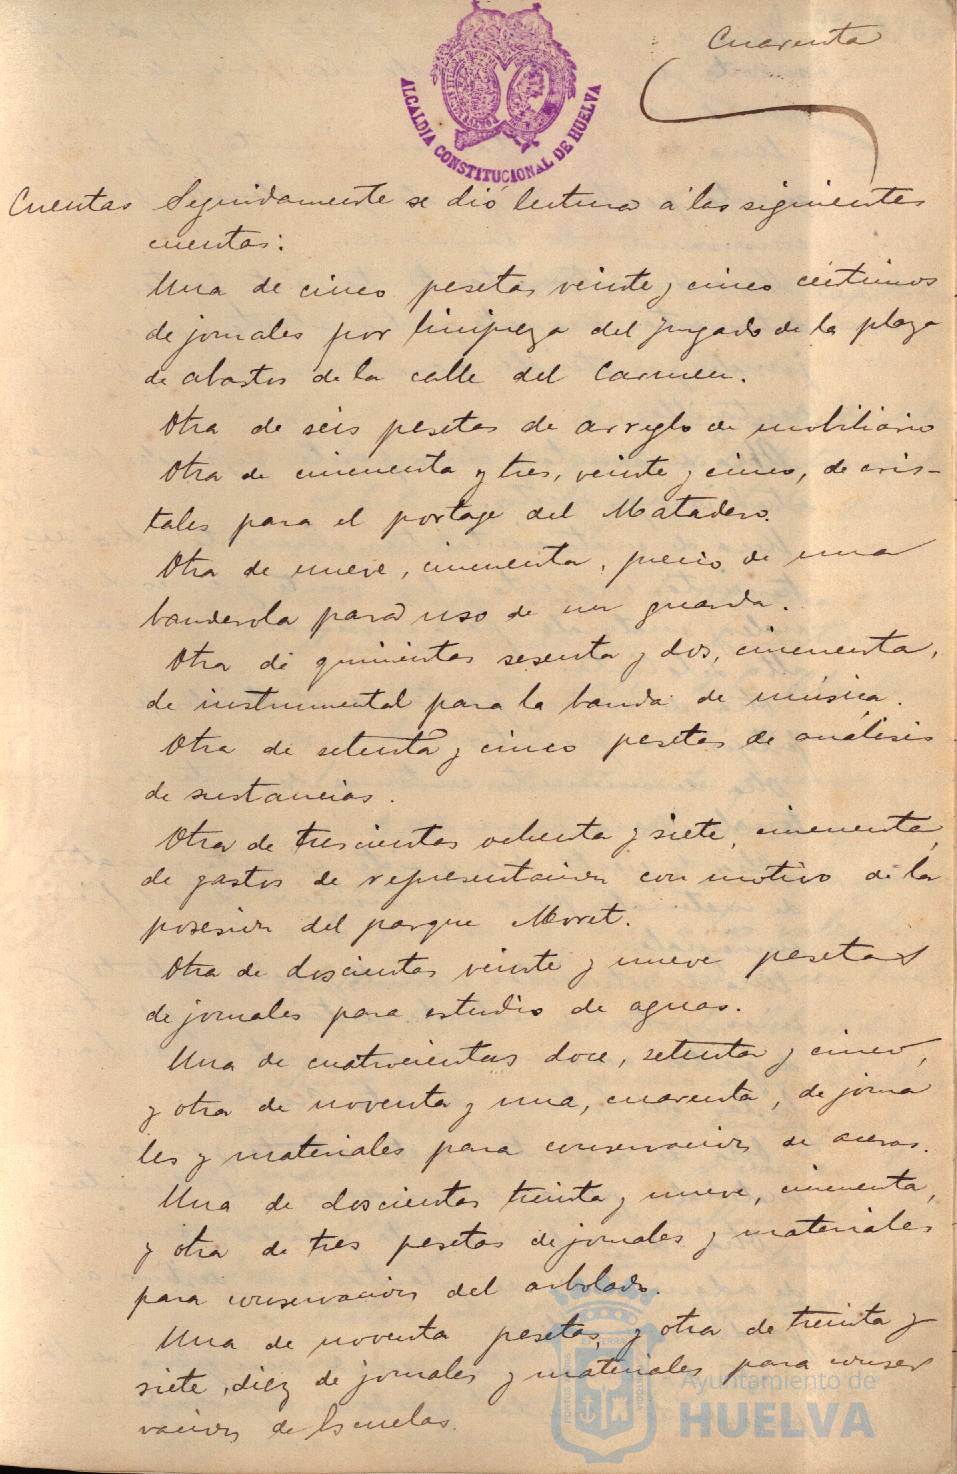 Cuarenta
ALCALDIA CONSTITUCIONAL DE HUELVA
Cuentas Seguidamente se dió lectura á las siguientes
cuentas:
Una de cinco pesetas veinte y cinco céntimos
de jornales por limpieza del juzgado de la plaza
de abastos de la calle del Carmen.
Otra de seis pesetas de arreglo de mobiliario
Otra de cincuenta y tres, veinte y cinco, de cris-
tales para el portage del Matadero.
Otra de nueve, cincuenta, precio de una
banderola para uso de un guarda.
Otra de quinientas sesenta y dos, cincuenta,
de instrumental para la banda de música.
Otra de setenta y cinco pesetas de análisis
de sustancias.
Otra de trescientas ochenta y siete, cincuenta,
de gastos de representacion con motivo de la
posesion del parque Moret.
Otra de doscientas veinte y nueve pesetas
de jornales para estudio de aguas.
Una de cuatrocientas doce, setenta y cinco,
y otra de noventa y una, cuarenta, de jorna
les y materiales para conservacion de aceras.
Una de doscientas treinta y nueve, cincuenta,
y otra de tres pesetas de jornales y materiales
para conservacion del arbolado.
Una de noventa pesetas, y otra de treinta y
siete, diez de jornales y materiales para conser
vacion de Escuelas.
Ayuntamiento de
HUELVA